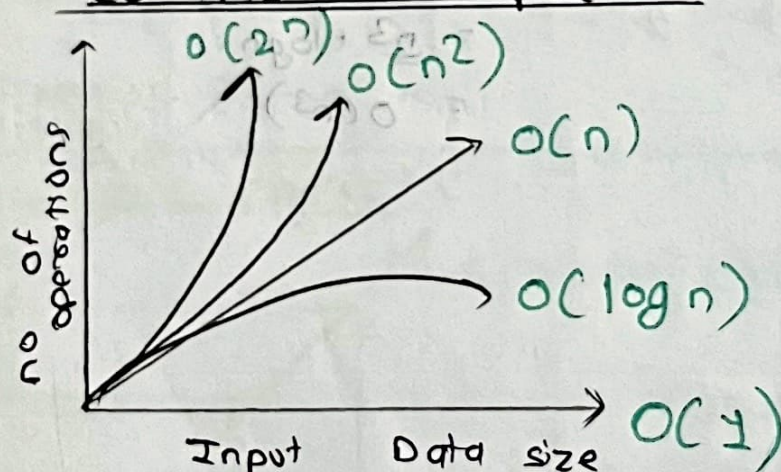 O(2ⁿ)
O(n²)
O(n)
O(log n)
O(1)
no of
opperations
Input Data size